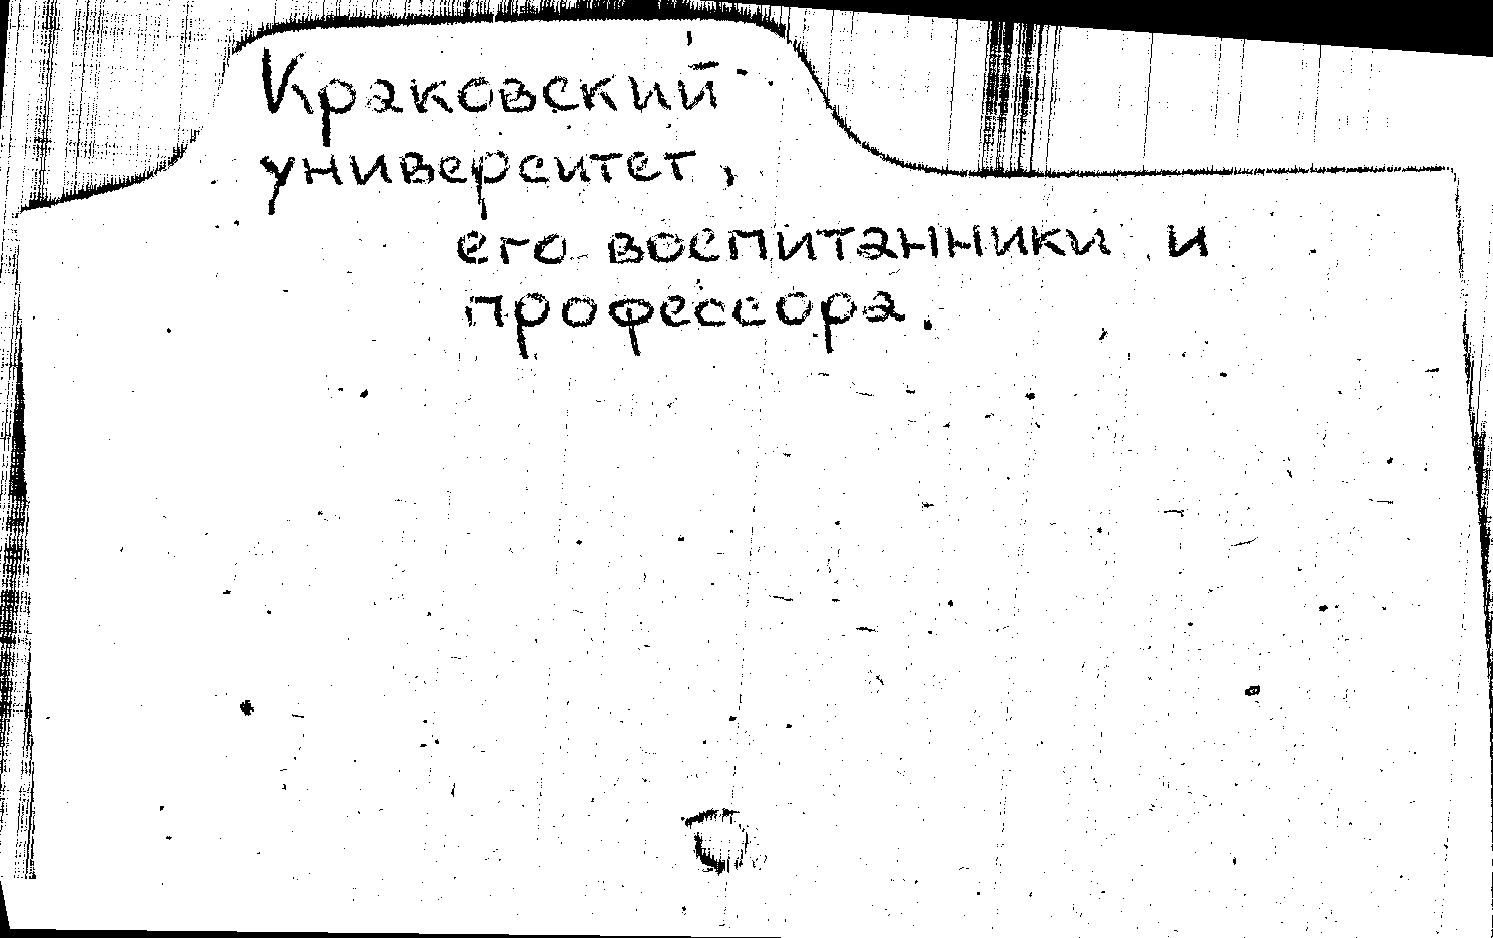 Краковский
университет,
его воспитанники и
профессора.